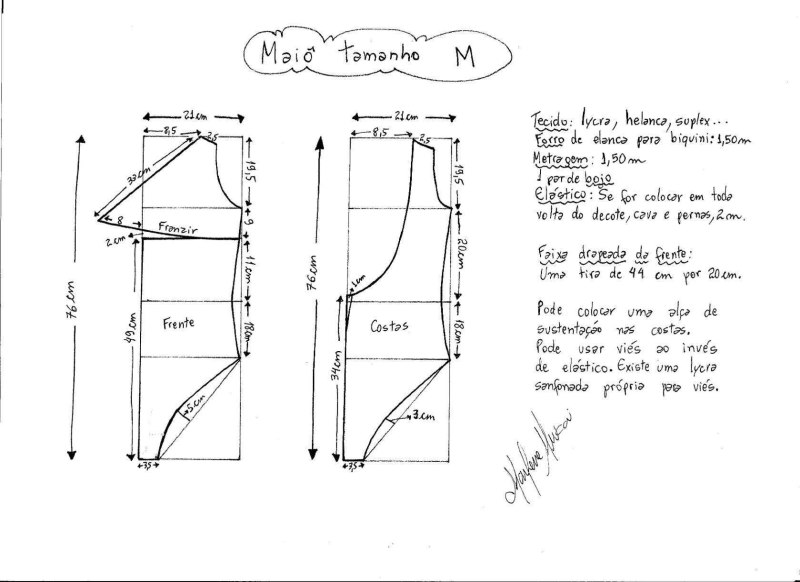 Maiô tamanho M
21 cm
8,5
2,5
32 cm
19,5
8
Franzir
9
2 cm
11 cm
76 cm
49 cm
Frente
18 cm
5 cm
3,5
21 cm
8,5
2,5
19,5
20 cm
76 cm
1 cm
Costas
18 cm
34 cm
3 cm
3,5
Tecido: lycra, helanca, suplex...
Forro de elanca para biquini: 1,50m
Metragem: 1,50 m
1 par de bojo
Elástico: Se for colocar em toda
volta do decote, cava e pernas, 2 m.
Faixa drapeada da frente:
Uma tira de 44 cm por 20 cm.
Pode colocar uma alça de
sustentação nas costas.
Pode usar viés ao invés
de elástico. Existe uma lycra
sanfonada própria para viés.
Marlene